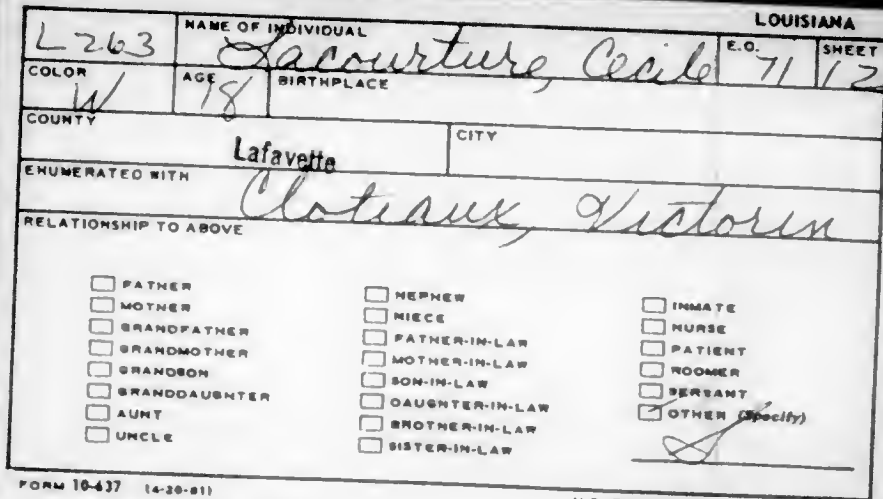 LOUISIANA
L263 NAME OF INDIVIDUAL Lacourture, Cecile E.O. 71 SHEET 12
COLOR W AGE 18 BIRTHPLACE
COUNTY Lafayette CITY
ENUMERATED WITH Cloteaux, Victorin
RELATIONSHIP TO ABOVE
FATHER
MOTHER
GRANDFATHER
GRANDMOTHER
GRANDSON
GRANDDAUGHTER
AUNT
UNCLE
NEPHEW
NIECE
FATHER-IN-LAW
MOTHER-IN-LAW
SON-IN-LAW
DAUGHTER-IN-LAW
BROTHER-IN-LAW
SISTER-IN-LAW
INMATE
NURSE
PATIENT
ROOMER
SERVANT
OTHER (Specify)
FORM 10-637 (4-20-61)